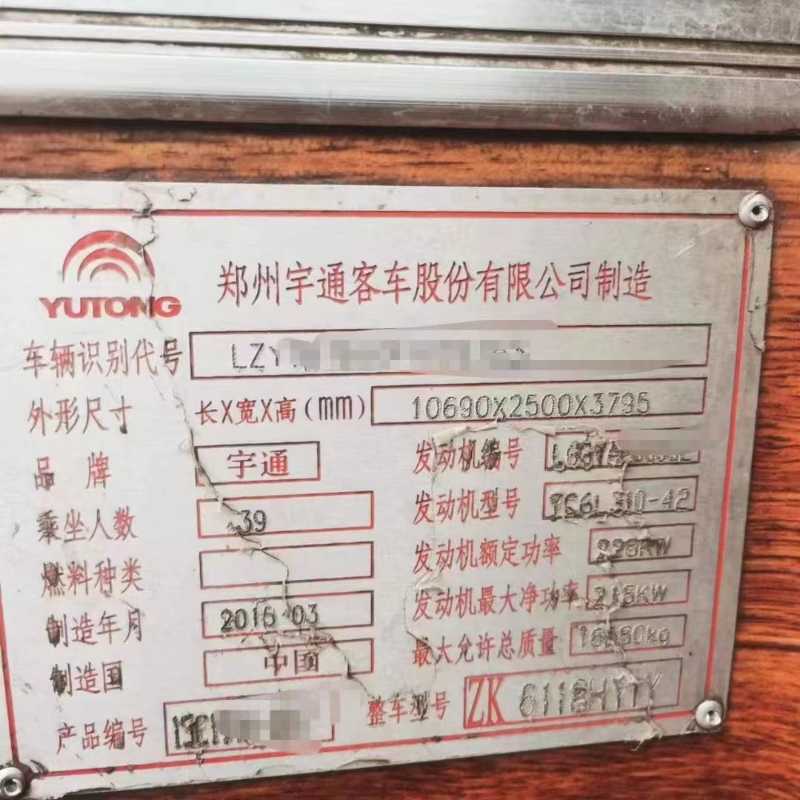 YUTONG
郑州宇通客车股份有限公司制造
车辆识别代号 LZY
外形尺寸 长X宽X高(mm) 10690X2500X3795
品牌 宇通 发动机编号
乘坐人数 39 发动机型号 YC6L310-42
燃料种类 发动机额定功率 228KW
制造年月 2016 03 发动机最大净功率 215KW
制造国 中国 最大允许总质量
产品编号 整车型号 ZK